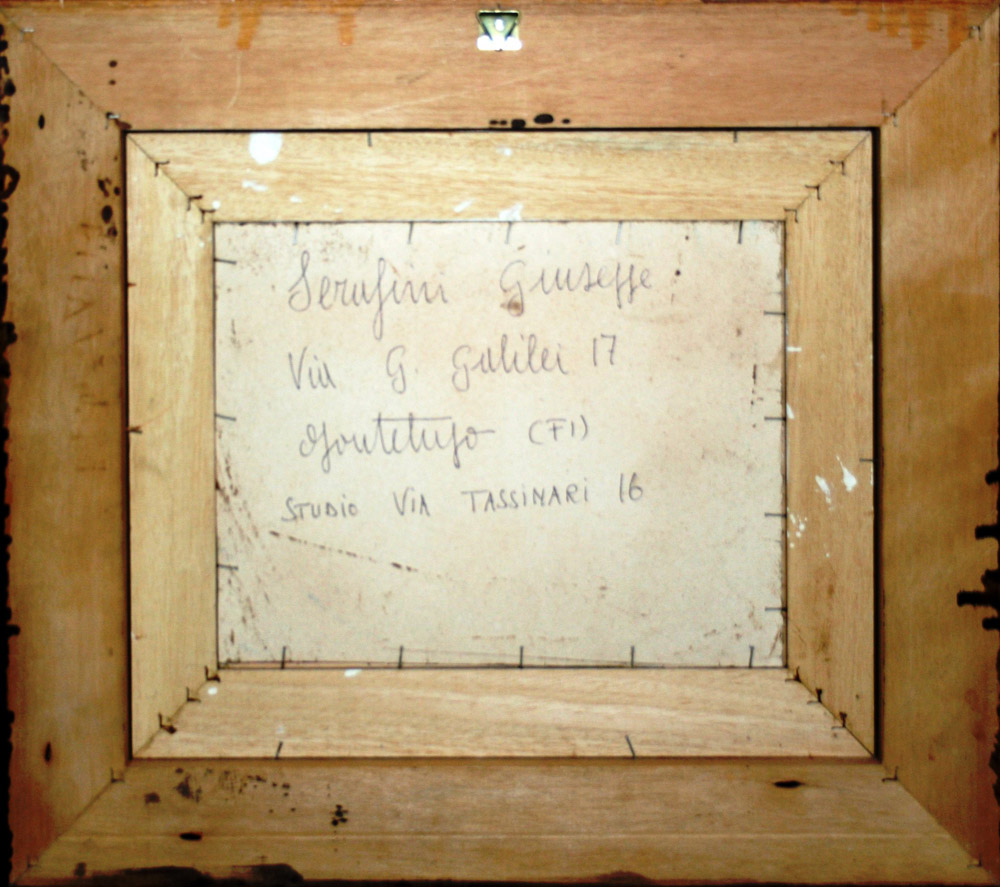 Serafini Giuseppe
Via G. Galilei 17
Montelupo (FI)
STUDIO VIA TASSINARI 16